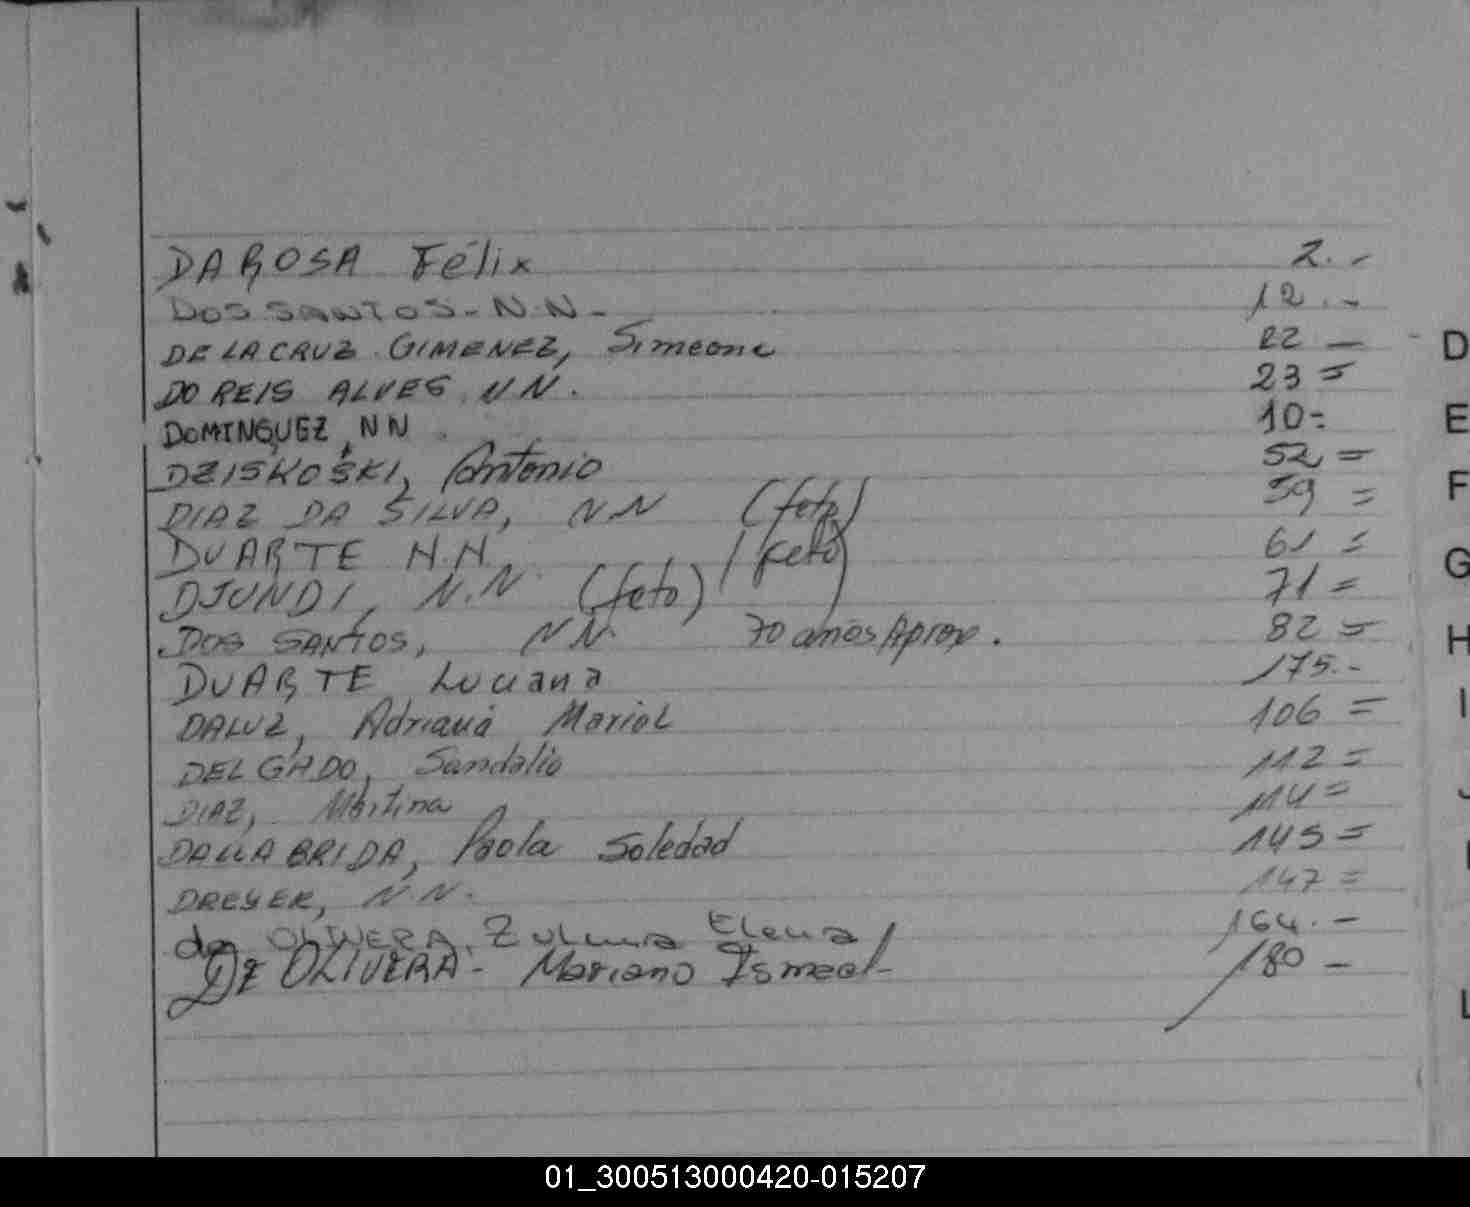 DAROSA Félix 2.-
DOS SANTOS - N.N - 12.-
DE LA CRUZ GIMENEZ, Simeona 22 -
DO REIS ALVES, NN. 23 =
DOMINGUEZ, NN 10 =
DZISKOSKI, Antonio 52 =
DIAZ DA SILVA, NN (feto) 59 =
DUARTE N.N. (feto) 61 =
DJUNDI, N.N (feto) 71 =
DOS SANTOS, NN. 70 años Aprox. 82 =
DUARTE Luciana 175.-
DALUZ, Adriana Mariel 106 =
DELGADO, Sandalio 112 =
DIAZ, Martina 114 =
DALLABRIDA, Paola Soledad 145 =
DREYER, N.N. 147 =
de OLIVERA, Zulma Elena 164.-
De OLIVERA - Mariano Ismael - 180 -
D
E
F
G
H
I
J
L
01_300513000420-015207